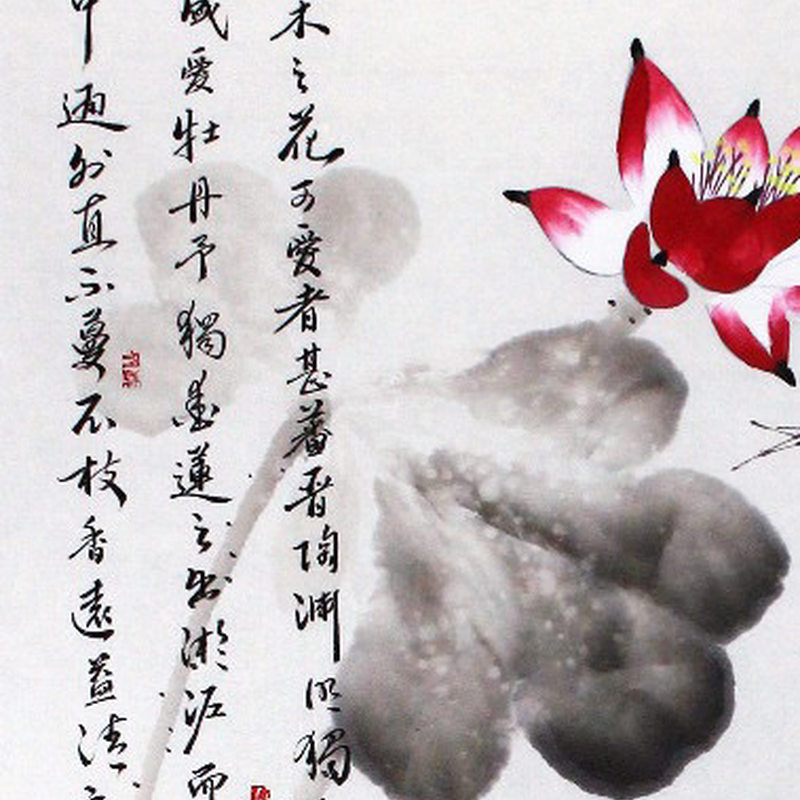 木之花可愛者甚蕃晉陶淵明獨
盛愛牡丹予獨愛蓮之出淤泥而
中通外直不蔓不枝香遠益清